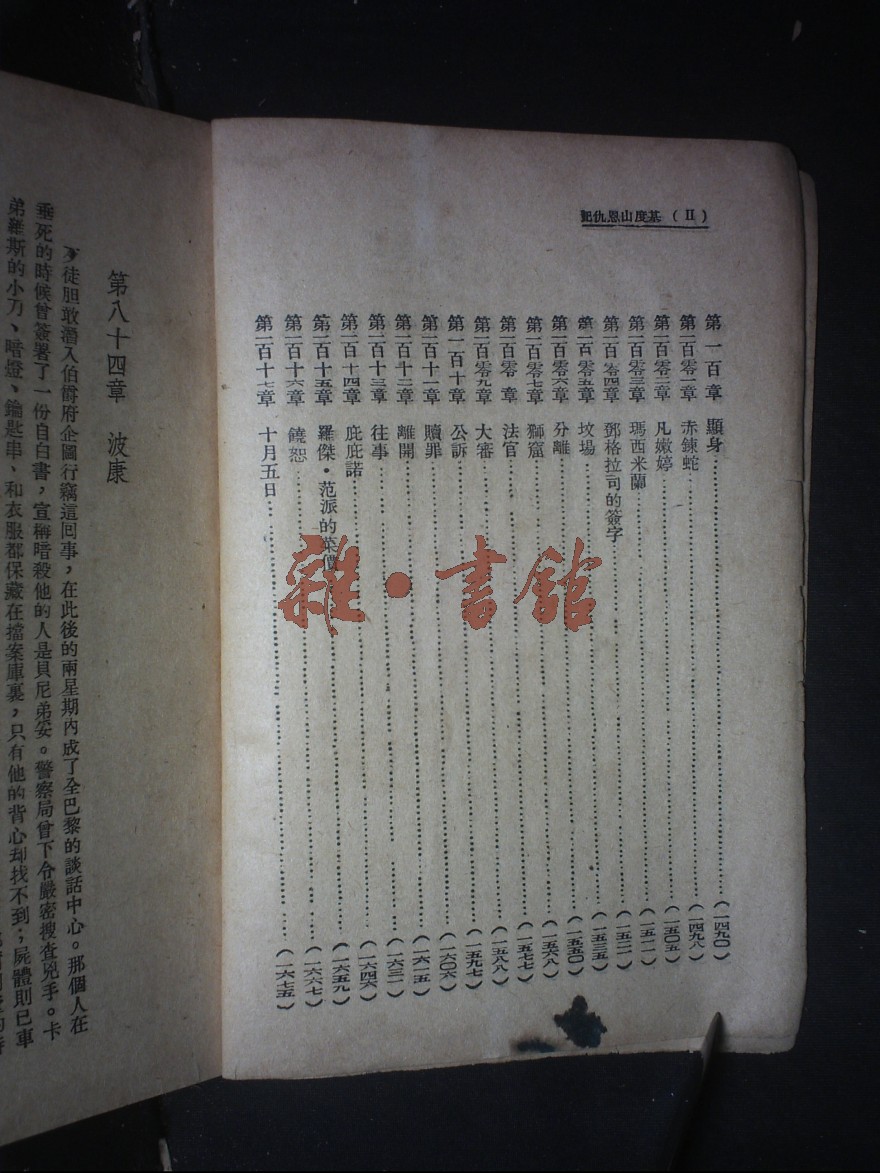 (II) 基度山恩仇記
第一百章 顯身……(一四九〇)
第一百零一章 赤鍊蛇……(一四九八)
第一百零二章 凡嫩婷……(一五〇五)
第一百零三章 瑪西米蘭……(一五一一)
第一百零四章 鄧格拉司的簽字……(一五二一)
第一百零五章 坟場……(一五三五)
第一百零六章 分離……(一五五〇)
第一百零七章 獅窟……(一五六八)
第一百零 章 法官……(一五七七)
第一百零九章 大審……(一五八八)
第一百十章 公訴……(一五九七)
第一百十一章 贖罪……(一六〇六)
第一百十二章 離開……(一六一五)
第一百十三章 往事……(一六三一)
第一百十四章 庇庇諾……(一六四六)
第一百十五章 羅傑・范派的菜價……(一六五九)
第一百十六章 饒恕……(一六六七)
第一百十七章 十月五日……(一六七五)
雜・書館
第八十四章 波康
歹徒胆敢潛入伯爵府企圖行竊這回事，在此後的兩星期內成了全巴黎的談話中心。那個人在
垂死的時候曾簽署了一份自白書，宣稱暗殺他的人是貝尼弟妥。警察局曾下令嚴密搜查兇手。卡
弟羅斯的小刀、暗燈、鑰匙串、和衣服都保藏在擋案庫裏，只有他的背心却找不到；屍體則已車